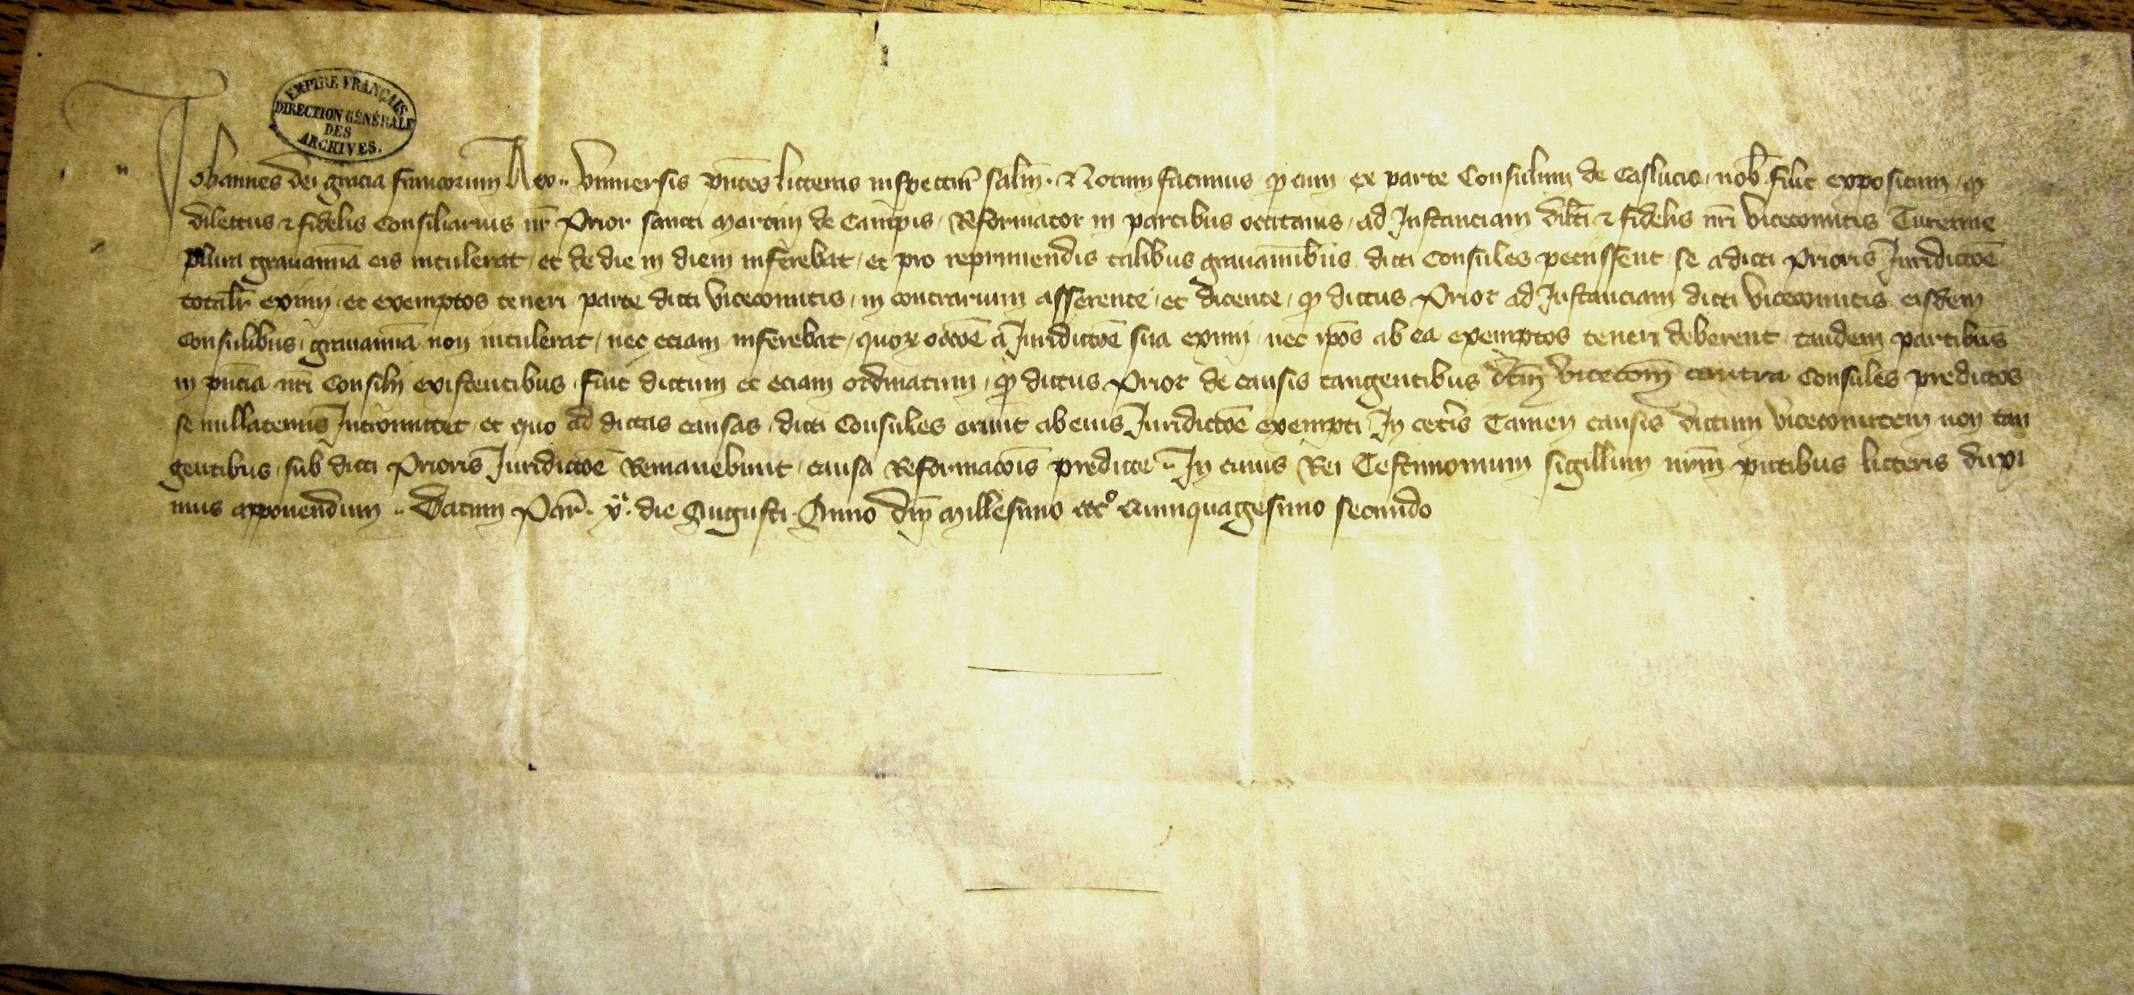 EMPIRE FRANÇAIS
DIRECTION GÉNÉRALE
DES
ARCHIVES.
Johannes dei gracia francorum Rex .. Universis pñtes litteras inspectur̃ salt̃m. Notum facimus q̃ cum ex parte Consulum de Caslucio, nob̃ fuit expositum, q̃
dilectus et fidelis Consiliarius nr̃ Prior sancti Martini de Campis, Reformator in partibus occitanis, ad Instanciam dilc̃ti et fidelis nr̃i vicecomitis Turenne
plura gravamĩa eis intulerat, et de die in diem inferebat, et pro reprimendis talibus gravamĩbus dicti Consules peciissent se a dicti Prioris Juridictõe
totalr̃ eximi, et exemptos teneri parte dicti vicecomitis, in contrarium asserente, et dicente, q̃ dictus Prior ad Instanciam dicti vicecomitis eisdem
Consulibus, gravamĩa non intulerat, nec eciam inferebat, quor̃ occõe a Juridictõe sua eximi, nec ip̃os ab ea exemptos teneri deberent, tandem partibus
in pñcia nr̃i Consilii existentibus, fuit dictum et eciam ordinatum, q̃ dictus Prior de causis tangentibus dc̃m vicecom̃ contra Consules predictos
se nullatenus Intromittet et quo ad dictas causas, dicti Consules erunt ab eius Juridictõe exempti, In cetĩs Tamen causis dictum vicecomitem non tan
gentibus, sub dicti Prioris Juridictõe Remanebunt, causa Reformacõis predicte .. In cuius Rei Testimonium sigillum nr̃m pñtibus litteris duxi
mus apponendum .. Datum Par̃. xͣ. die Augusti Anno dñi Millesimo cccº Quinquagesimo secundo